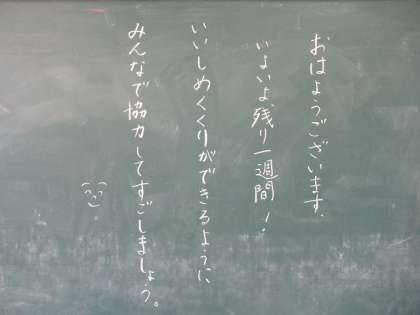 おはようございます.
いよいよ残り一週間!
いいしめくくりができるように
みんなで協力してすごしましょう。